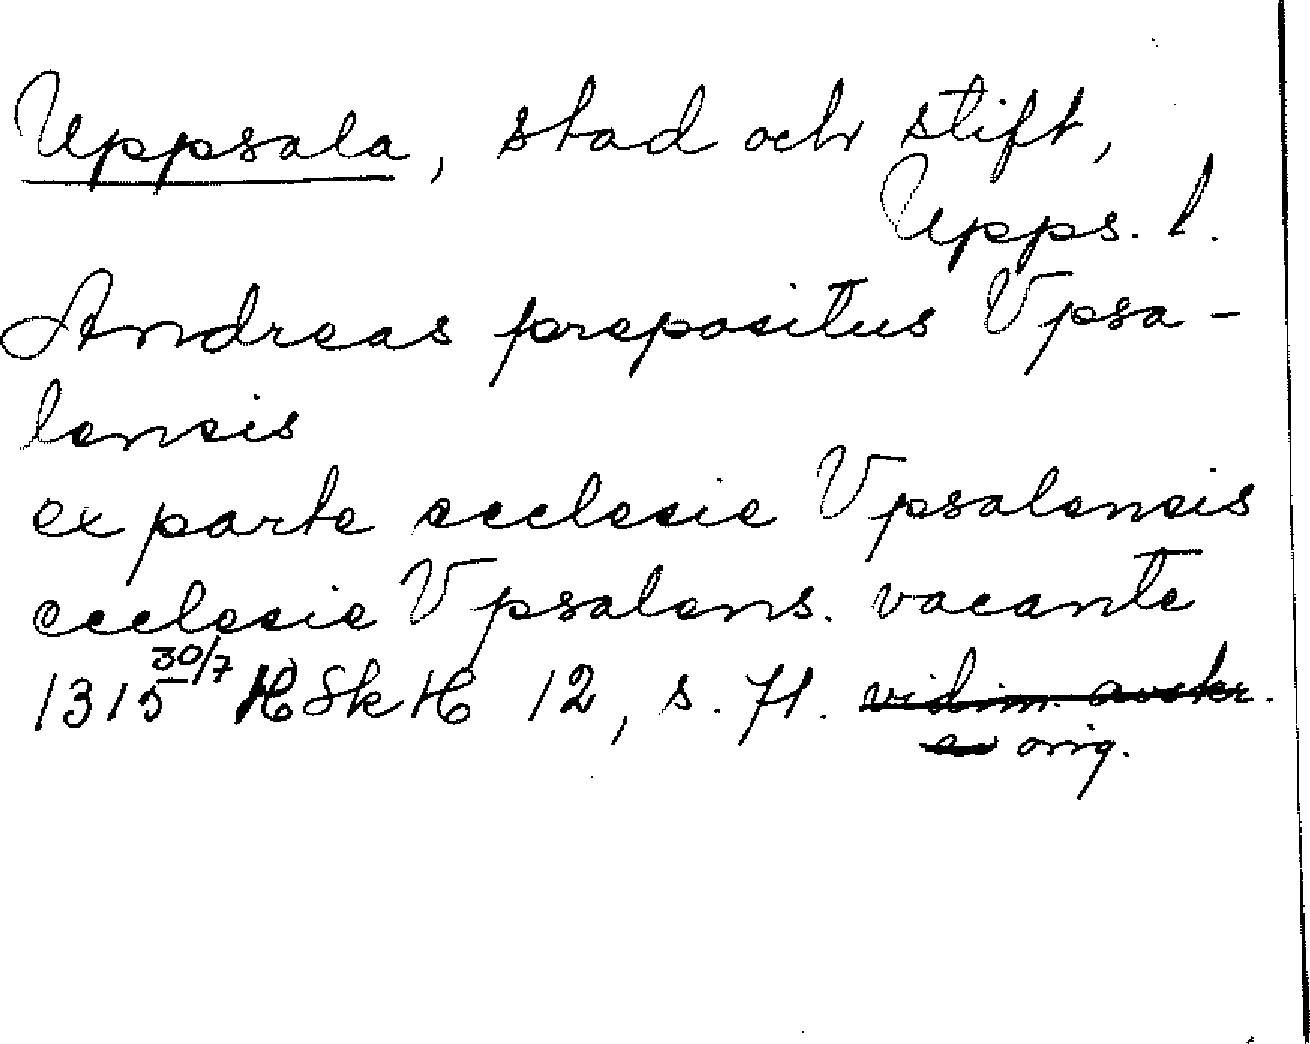 Uppsala, stad och stift,
Upps. l.
Andreas prepositus Vpsa-
lensis
ex parte ecclesie Vpsalensis
ecclesie Vpsalens. vacante
1315 30/7 HSkH 12, s. 71. vidim. avskr.
av orig.